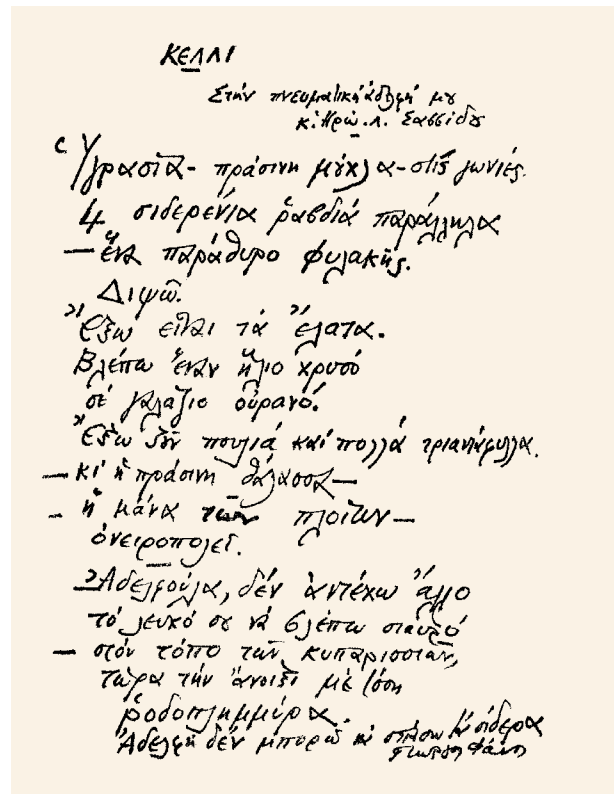 ΚΕΛΛΙ
Στήν πνευματική ἀδελφή μου
κ. Ἡρώ. Λ. Σασσίδου
Ὑγρασία - πράσινη μούχλα - στίς γωνιές.
4 σιδερένια ραβδιά παράλληλα
— ἕνα παράθυρο φυλακῆς.
Διψῶ.
Ἔξω εἶναι τά ἔλατα.
Βλέπω ἕναν ἥλιο χρυσό
σέ γαλάζιο οὐρανό.
Ἔξω ζοῦν πουλιά καί πολλά τριαντάφυλλα.
— κι ἡ πράσινη θάλασσα —
— ἡ μάνα τῶν πλοίων —
ὀνειροπολεῖ.
Ἀδελφούλα, δέν ἀντέχω ἄλλο
τό λευκό σου νά βλέπω σταυρό
— στόν τόπο τῶν κυπαρισσιῶν,
τώρα τήν ἄνοιξι μέ τόση
ροδοπλημμύρα.
Ἀδελφή δέν μπορῶ νά σπάσω τά σίδερα